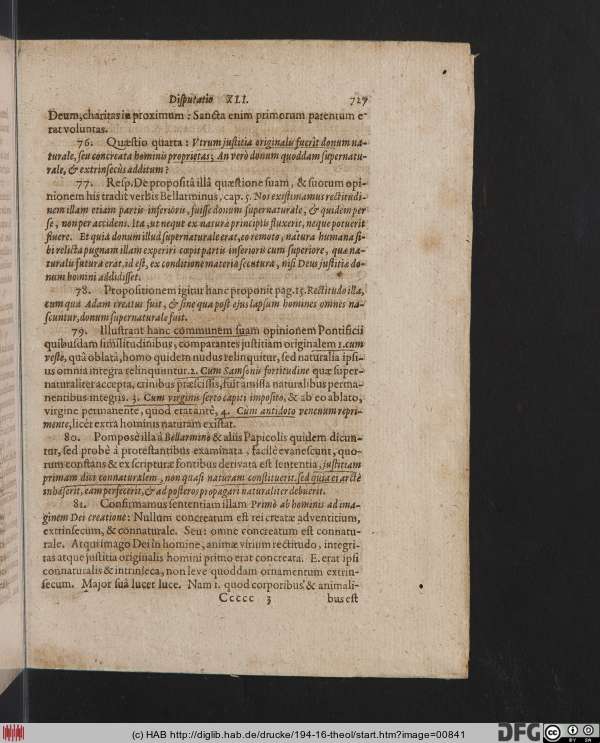 Disputatio XLI. 727
Deum, charitas in proximum: Sancta enim primorum parentum e-
rat voluntas.
76. Quæstio quarta: Utrum justitia originalis fuerit donum na-
turale, seu concreata hominis proprietas; An verò donum quoddam supernatu-
rale, & extrinsecùs additum?
77. Resp. De propositâ illâ quæstione suam, & suorum opi-
nionem his tradit verbis Bellarminus, cap. 5. Nos existimamus rectitudi-
nem illam etiam partis inferioris, fuisse donum supernaturale, & quidem per
se, non per accidens. Ita, ut neque ex naturæ principiis fluxerit, neque potuerit
fluere. Et quia donum illud supernaturale erat, eo remoto, natura humana si-
bi relicta pugnam illam experiri cœpit partis inferioris cum superiore, quæ na-
turalis futura erat, id est, ex conditione materiæ secutura, nisi Deus justitiæ do-
num homini addidisset.
78. Propositionem igitur hanc proponit pag. 15. Rectitudo illa,
cum qua Adam creatus fuit, & sine qua post ejus lapsum homines omnes na-
scuntur, donum supernaturale fuit.
79. Illustrant hanc communem suam opinionem Pontificii
quibusdam similitudinibus, comparantes justitiam originalem 1. cum
veste, quâ oblatâ, homo quidem nudus relinquitur, sed naturalia ipsi-
us omnia integra relinquuntur. 2. Cum Samsonis fortitudine quæ super-
naturaliter accepta, crinibus præscissis, fuit amissa naturalibus perma-
nentibus integris. 3. Cum virginis serto capiti imposito, & ab eo ablato,
virgine permanente, quod erat antè, 4. Cum antidoto venenum repri-
mente, licèt extra hominis naturam existat.
80. Pomposè illa â Bellarminò & aliis Papicolis quidem dicun-
tur, sed probè â protestantibus examinata, facilè evanescunt, quo-
rum constans & ex scripturæ fontibus derivata est sententia, justitiam
primam divi connaturalem, non quasi naturam constituerit, sed quia ei arctè
inhæserit, eam perfecerit, & ad posteros propagari naturaliter debuerit.
81. Confirmamus sententiam illam Primò ab hominis ad ima-
ginem Dei creatione: Nullum concreatum est rei creatæ adventitium,
extrinsecum, & connaturale. Seu: omne concreatum est connatu-
rale. Atqui imago Dei in homine, animæ virium rectitudo, integri-
tas atque justitia originalis homini primo erat concreata. E. erat ipsi
connaturalis & intrinseca, non leve quoddam ornamentum extrin-
secum. Major suâ lucet luce. Nam 1. quod corporibus & animali-
Ccccc 3 bus est
(c) HAB http://diglib.hab.de/drucke/194-16-theol/start.htm?image=00841
DFG
cc BY SA